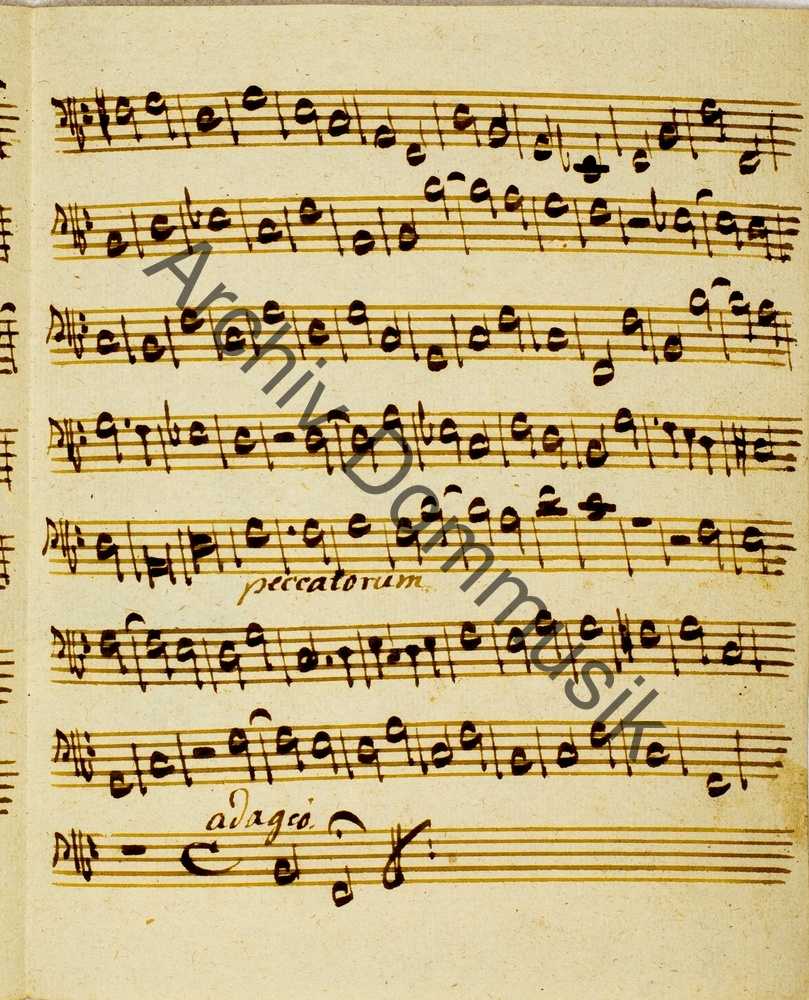 peccatorum
adagio.
Archiv Dommusik